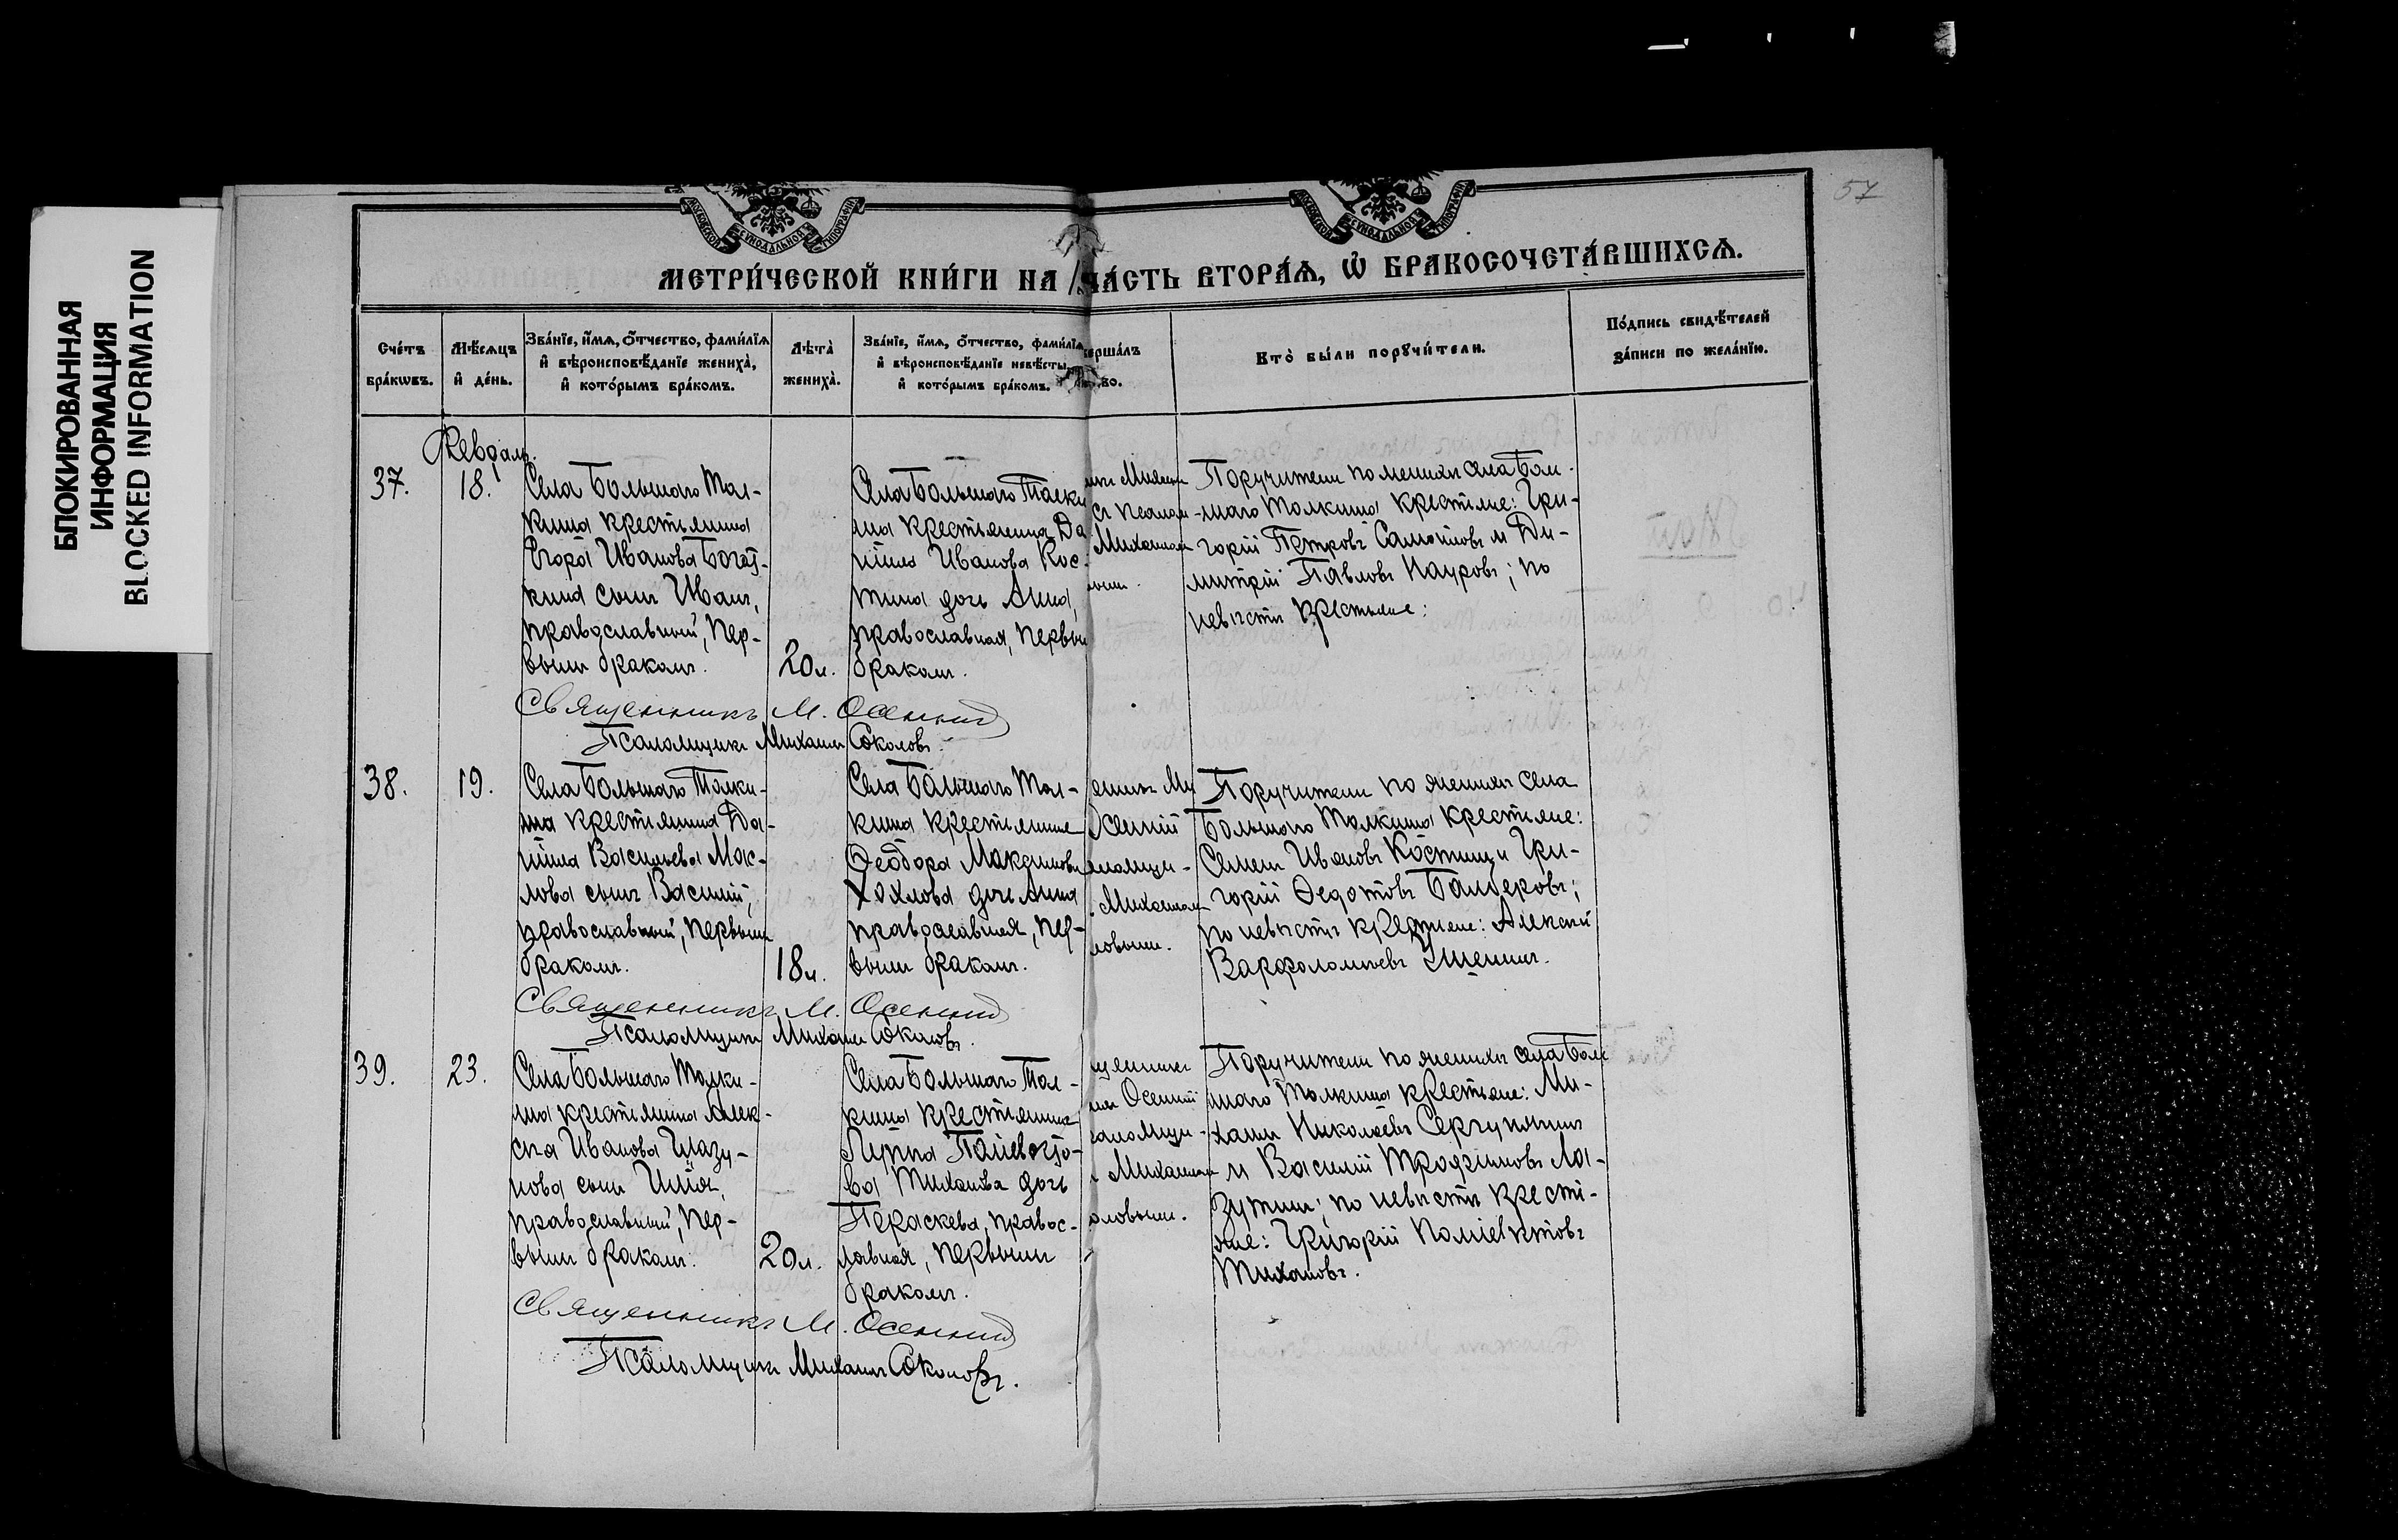 БЛОКИРОВАННАЯ
ИНФОРМАЦИЯ
BLOCKED INFORMATION
57
МОСКОВСКОЙ СѴНОДАЛЬНОЙ ТИПОГРАФІИ
МОСКОВСКОЙ СѴНОДАЛЬНОЙ ТИПОГРАФІИ
МЕТРИ́ЧЕСКОЙ КНИ́ГИ НА
ЧА́СТЬ ВТОРА́Ѧ, Ѽ БРАКОСОЧЕТА́ВШИХСѦ.
Сче́тъ
бра́кѡвъ.
Мѣ́сѧцъ
и҆ де́нь.
Зва́нїе, и҆́мѧ, ѻ҆́тчество, фами́лїѧ
и҆ вѣроисповѣ́данїе жениха̀,
и҆ кото́рымъ бра́комъ.
Лѣ́та̀
жениха̀.
Зва́нїе, и҆́мѧ, ѻ҆́тчество, фами́лїѧ
и҆ вѣроисповѣ́данїе невѣ́сты,
и҆ кото́рымъ бра́комъ.
ершалъ
во.
Кто̀ бы́ли порꙋчи́тели.
По́дпись свидѣ́телей
за́писи по жела́нїю.
Февраль.
37.
18.
Села Большаго Тол-
кина крестьянина
Егора Иванова Богат-
кина сынъ Иванъ,
православный, пер-
вымъ бракомъ.
20 л.
Села Большаго Толки
на крестьянина Да
ніила Иванова Кос-
тина дочь Анна,
православная, первым
бракомъ.
Михаилом
Поручители по женихѣ села Боль-
-шаго Толкина крестьяне: Гри-
горій Петровъ Самойловъ и Ди-
митрій Павловъ Науровъ; по
невѣстѣ крестьяне:
Священникъ М. Осенний
Псаломщикъ Михаилъ Соколовъ.
38.
19.
Села Большаго Толки-
на крестьянина Да-
ніила Васильева Мас-
лова сынъ Василій,
православный, первымъ
бракомъ.
18 л.
Села Большаго Тол-
кина крестьянина
Ѳеодора Максимова
Хохлова дочь Анна
православная, пер-
вымъ бракомъ.
енникъ Ми
Осенній
аломщи-
Михаилом
ловымъ.
Поручители по женихѣ села
Большаго Толкина крестьяне:
Семенъ Ивановъ Костинъ и Гри-
горій Ѳедотовъ
по невѣстѣ крестьяне: Алексій
Варфоломѣевъ
Священникъ М. Осенний
Псаломщикъ Михаилъ Соколовъ.
39.
23.
Села Большаго Толки-
на крестьянина Алек-
сѣя Иванова Глазу-
нова сынъ Илія,
православный, пер-
вымъ бракомъ.
20 л.
Села Большаго Тол-
кина крестьянина
Тиханова дочь
Параскева, правос-
лавная, первымъ
бракомъ.
щенникъ
Осенній
саломщи-
Михаилом
оловымъ.
Поручители по женихѣ села Боль
шаго Толкина крестьяне: Ми-
хаилъ Николаевъ
и Василій Трофимовъ Ла-
зутинъ; по невѣстѣ крестья-
яне: Григорій Поліевктовъ
Тихановъ.
Священникъ М. Осенний
Псаломщикъ Михаилъ Соколовъ.